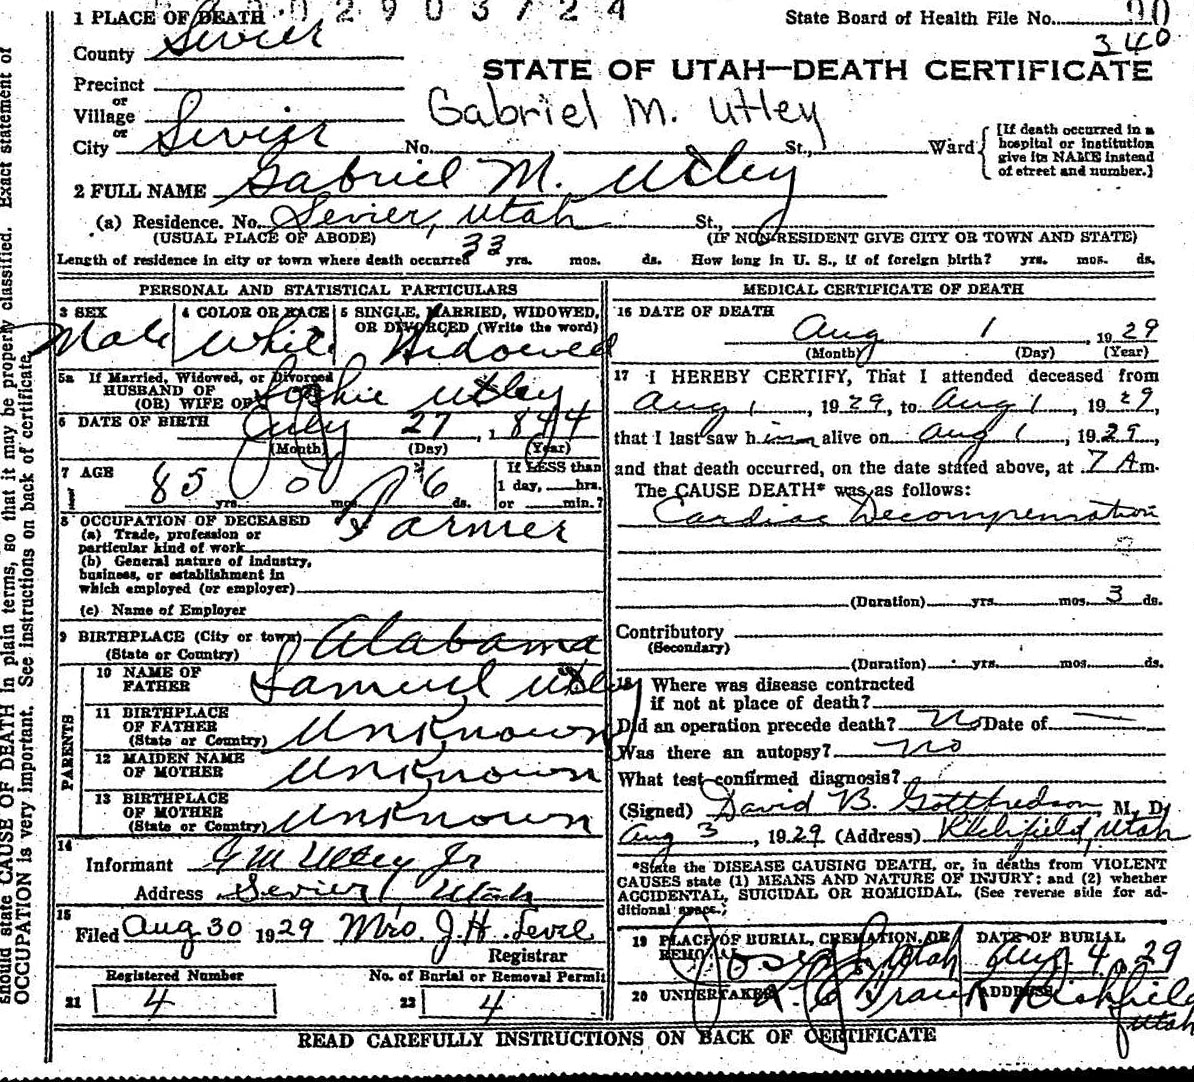 2903724
1 PLACE OF DEATH
State Board of Health File No. 90
County Sevier
340
STATE OF UTAH—DEATH CERTIFICATE
Precinct
or
Village
Gabriel M. Utley
or
City Sevier No. St., Ward
[If death occurred in a
hospital or institution
give its NAME instead
of street and number.]
2 FULL NAME Gabriel M. Utley
(a) Residence. No. Sevier, Utah St.,
(USUAL PLACE OF ABODE) (IF NON-RESIDENT GIVE CITY OR TOWN AND STATE)
Length of residence in city or town where death occurred 33 yrs. mos. ds. How long in U. S., if of foreign birth? yrs. mos. ds.
PERSONAL AND STATISTICAL PARTICULARS
3 SEX 4 COLOR OR RACE 5 SINGLE, MARRIED, WIDOWED,
OR DIVORCED (Write the word)
Male White Widowed
5a If Married, Widowed, or Divorced
HUSBAND OF
(OR) WIFE OF Sophie Utley
6 DATE OF BIRTH July 27, 1844
(Month) (Day) (Year)
7 AGE 85 yrs. 0 mos. 6 ds.
If LESS than
1 day, hrs.
or min.?
8 OCCUPATION OF DECEASED
(a) Trade, profession or
particular kind of work Farmer
(b) General nature of industry,
business, or establishment in
which employed (or employer)
(c) Name of Employer
9 BIRTHPLACE (City or town) Alabama
(State or Country)
PARENTS
10 NAME OF
FATHER Samuel Utley
11 BIRTHPLACE
OF FATHER
(State or Country) Unknown
12 MAIDEN NAME
OF MOTHER Unknown
13 BIRTHPLACE
OF MOTHER
(State or Country) Unknown
14
Informant G M Utley Jr
Address Sevier Utah
15
Filed Aug 30 1929 Mrs. J. H. Levie
Registrar
Registered Number No. of Burial or Removal Permit
21 4 22 4
MEDICAL CERTIFICATE OF DEATH
16 DATE OF DEATH
Aug 1, 1929
(Month) (Day) (Year)
17 I HEREBY CERTIFY, That I attended deceased from
Aug 1, 1929, to Aug 1, 1929,
that I last saw him alive on Aug 1, 1929,
and that death occurred, on the date stated above, at 7 Am.
The CAUSE DEATH* was as follows:
Cardiac Decompensation
(Duration) yrs. mos. 3 ds.
Contributory
(Secondary)
(Duration) yrs. mos. ds.
18 Where was disease contracted
if not at place of death?
Did an operation precede death? No Date of —
Was there an autopsy? no
What test confirmed diagnosis?
(Signed) David B. Gottfredson M. D.
Aug 3, 1929 (Address) Richfield, Utah
*State the DISEASE CAUSING DEATH, or, in deaths from VIOLENT
CAUSES state (1) MEANS AND NATURE OF INJURY; and (2) whether
ACCIDENTAL, SUICIDAL OR HOMICIDAL. (See reverse side for ad-
ditional space.)
19 PLACE OF BURIAL, CREMATION, OR DATE OF BURIAL
REMOVAL Joseph, Utah Aug. 4, 29
20 UNDERTAKER ADDRESS
Richfield
Utah
READ CAREFULLY INSTRUCTIONS ON BACK OF CERTIFICATE
should state CAUSE OF DEATH in plain terms, so that it may be properly classified. Exact statement of
OCCUPATION is very important. See instructions on back of certificate.